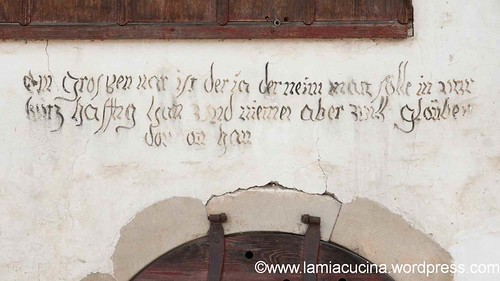 ein grossen nar ist der ja der nein man solle in
kurtz haffng han und niemer aber vil glouben
dor on han
©www.lamiacucina.wordpress.com